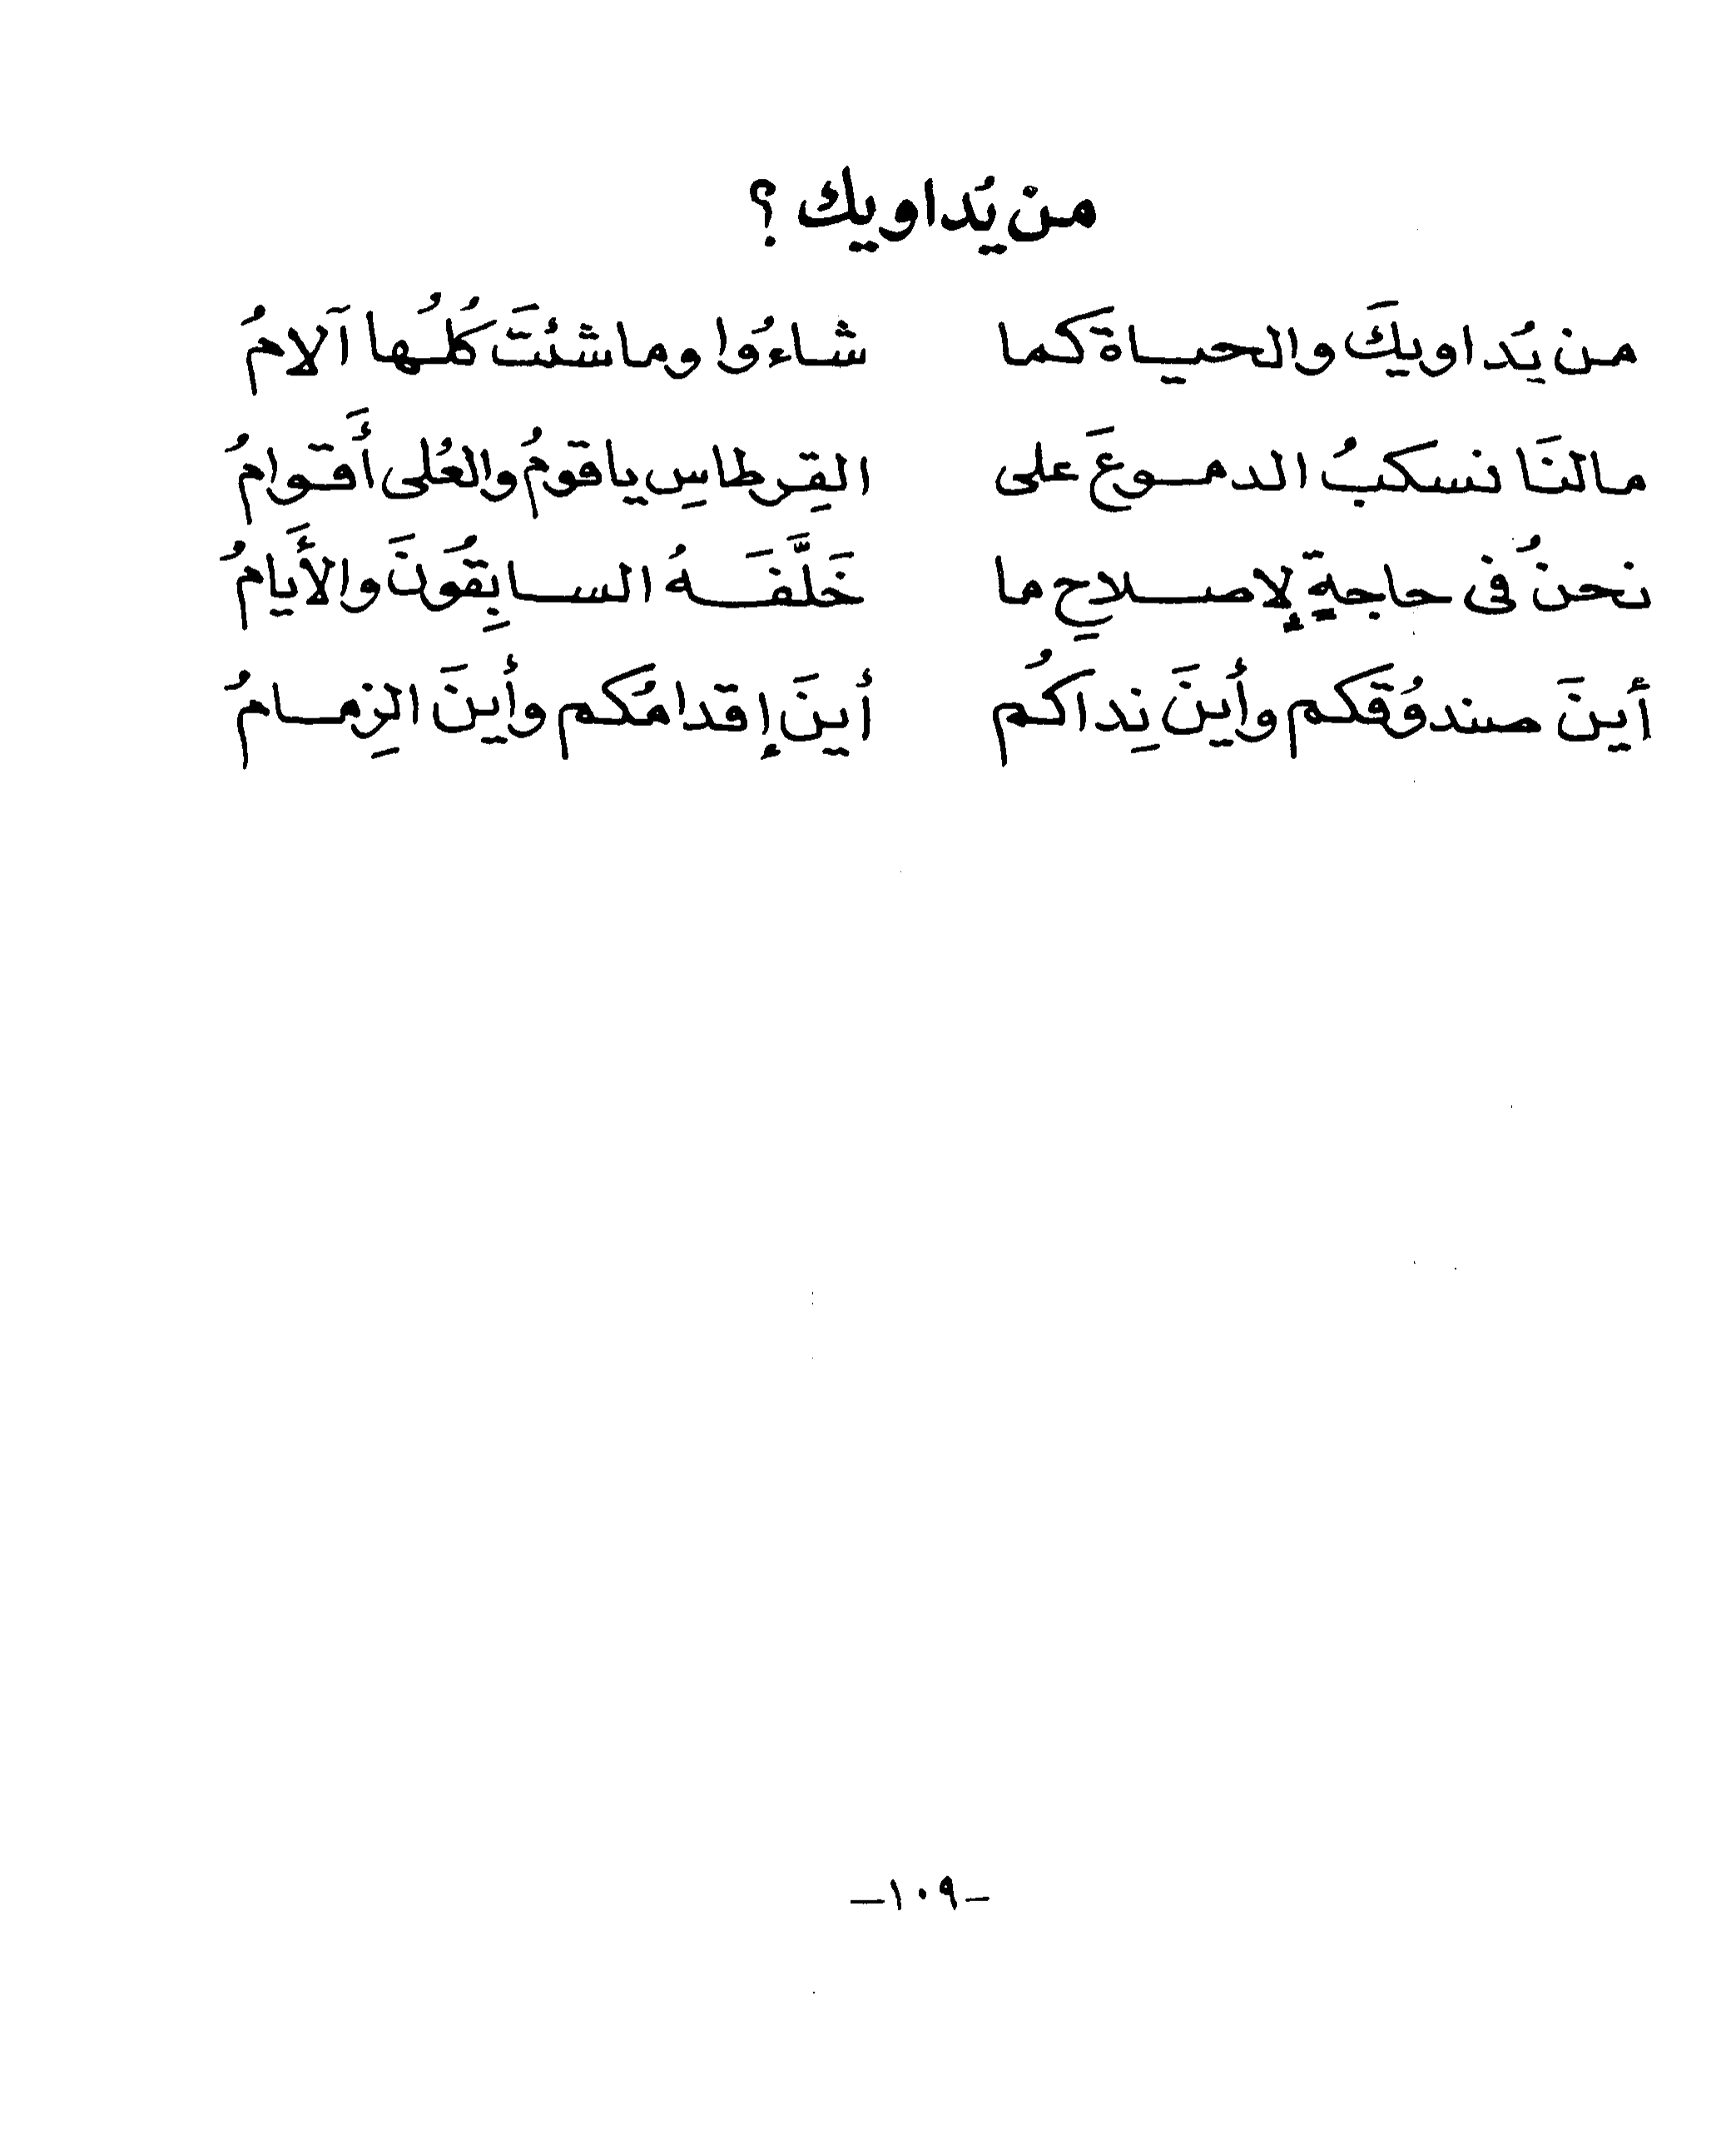 من يُداويك ؟
من يُداويكَ والحياة كما شاءُوا وما شئتَ كُلُها آلامُ
مالنَا نسكبُ الدموعَ على القِرطاسِ ياقومُ والعُلى أَقوامُ
نحنُ فى حاجةٍ لإصلاحِ ما خَلَّفَهُ السابِقُونَ والأَيامُ
أينَ صندوُقَكم وأينَ نِداكُم أينَ إقدامُكم وأينَ الزِمامُ
–١٠٩–